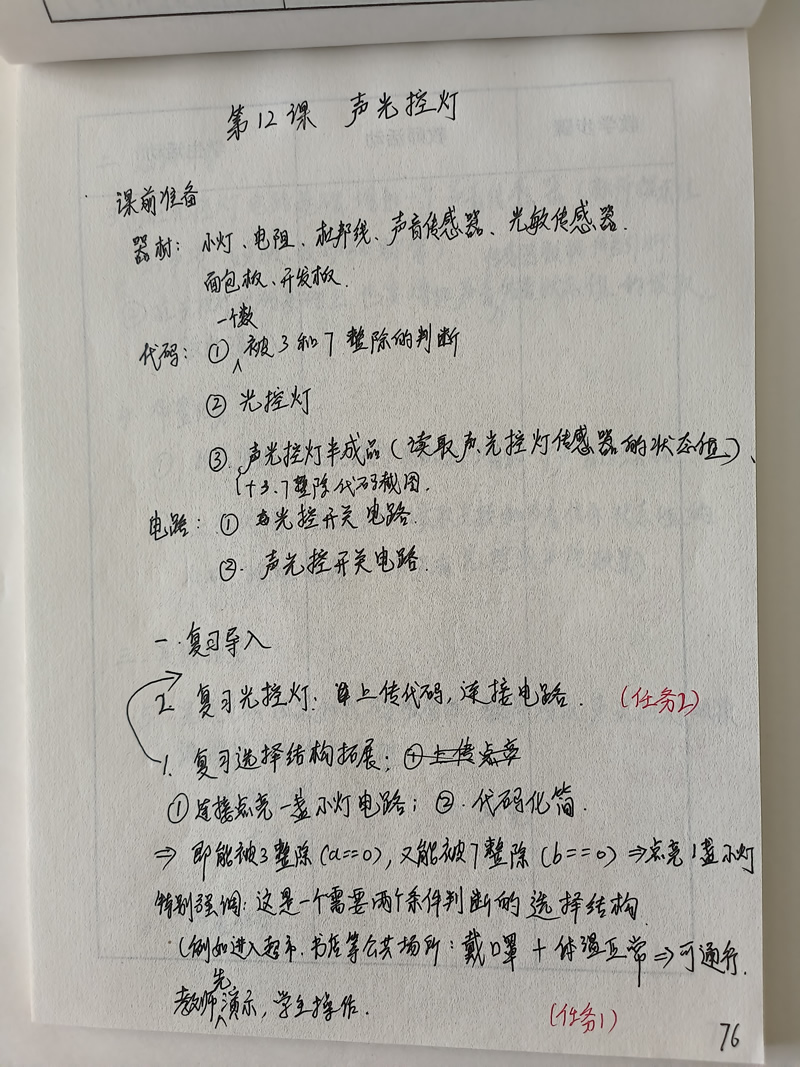 第12课 声光控灯
课前准备
器材: 小灯、电阻、杜邦线、声音传感器、光敏传感器.
面包板、开发板.
一个数
代码: ① 被3和7整除的判断
② 光控灯
③ 声光控灯半成品(读取声光控灯传感器的状态值)、
+3.7整除代码截图.
电路: ① 光控开关电路.
②. 声光控开关电路.
一. 复习导入
2. 复习光控灯: 上传代码, 连接电路. (任务2)
1. 复习选择结构拓展: ①上传点亮
①连接点亮一盏小灯电路; ②. 代码化简.
⇒ 即能被3整除(a==0), 又能被7整除(b==0)⇒点亮1盏小灯
特别强调: 这是一个需要两个条件判断的选择结构
(例如进入超市.书店等公共场所: 戴口罩 + 体温正常⇒可通行.
先
教师演示, 学生操作. (任务1)
76